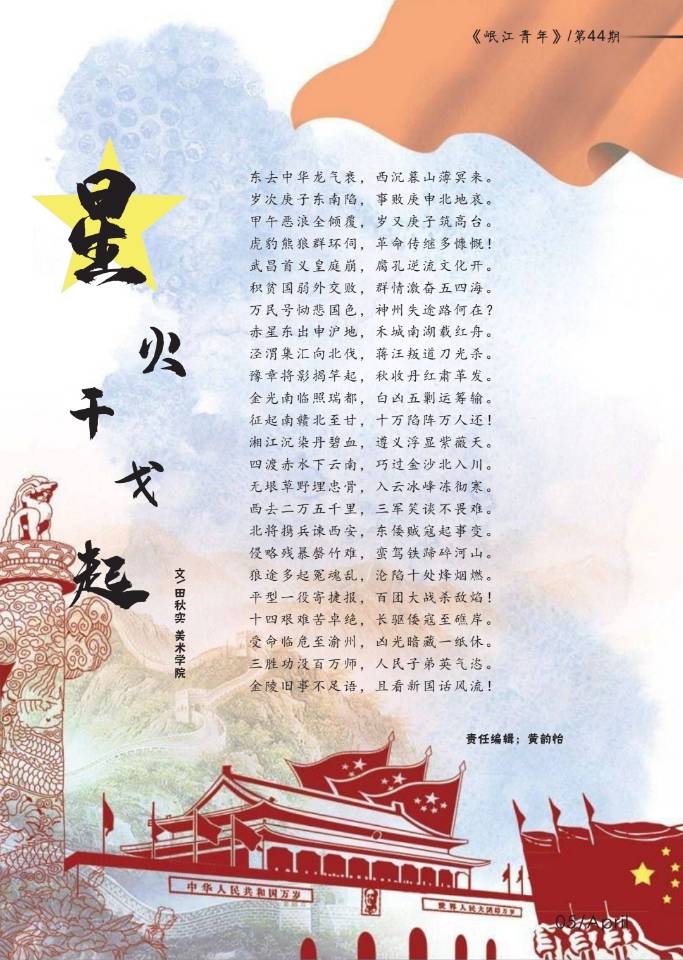 《岷江青年》/第44期
星
火
干
戈
起
文/田秋实 美术学院
东去中华龙气衰，西沉暮山薄冥来。
岁次庚子东南陷，事败庚申北地哀。
甲午恶浪全倾覆，岁又庚子筑高台。
虎豹熊狼群环伺，革命传继多慷慨！
武昌首义皇庭崩，腐孔逆流文化开。
积贫国弱外交败，群情激奋五四海。
万民号恸悲国色，神州失途路何在？
赤星东出申沪地，禾城南湖载红舟。
泾渭集汇向北伐，蒋汪叛道刀光杀。
豫章将影揭竿起，秋收丹红肃革发。
金光南临照瑞都，白凶五剿运筹输。
征起南赣北至甘，十万陷阵万人还！
湘江沉染丹碧血，遵义浮显紫薇天。
四渡赤水下云南，巧过金沙北入川。
无垠草野埋忠骨，入云冰峰冻彻寒。
西去二万五千里，三军笑谈不畏难。
北将携兵谏西安，东倭贼寇起事变。
侵略残暴罄竹难，蛮驾铁蹄碎河山。
狼途多起冤魂乱，沧陷十处烽烟燃。
平型一役寄捷报，百团大战杀敌焰！
十四艰难苦卓绝，长驱倭寇至礁岸。
受命临危至渝州，凶光暗藏一纸休。
三胜功没百万师，人民子弟英气恣。
金陵旧事不足语，且看新国话风流！
责任编辑：黄韵怡
中华人民共和国万岁
世界人民大团结万岁
05/April